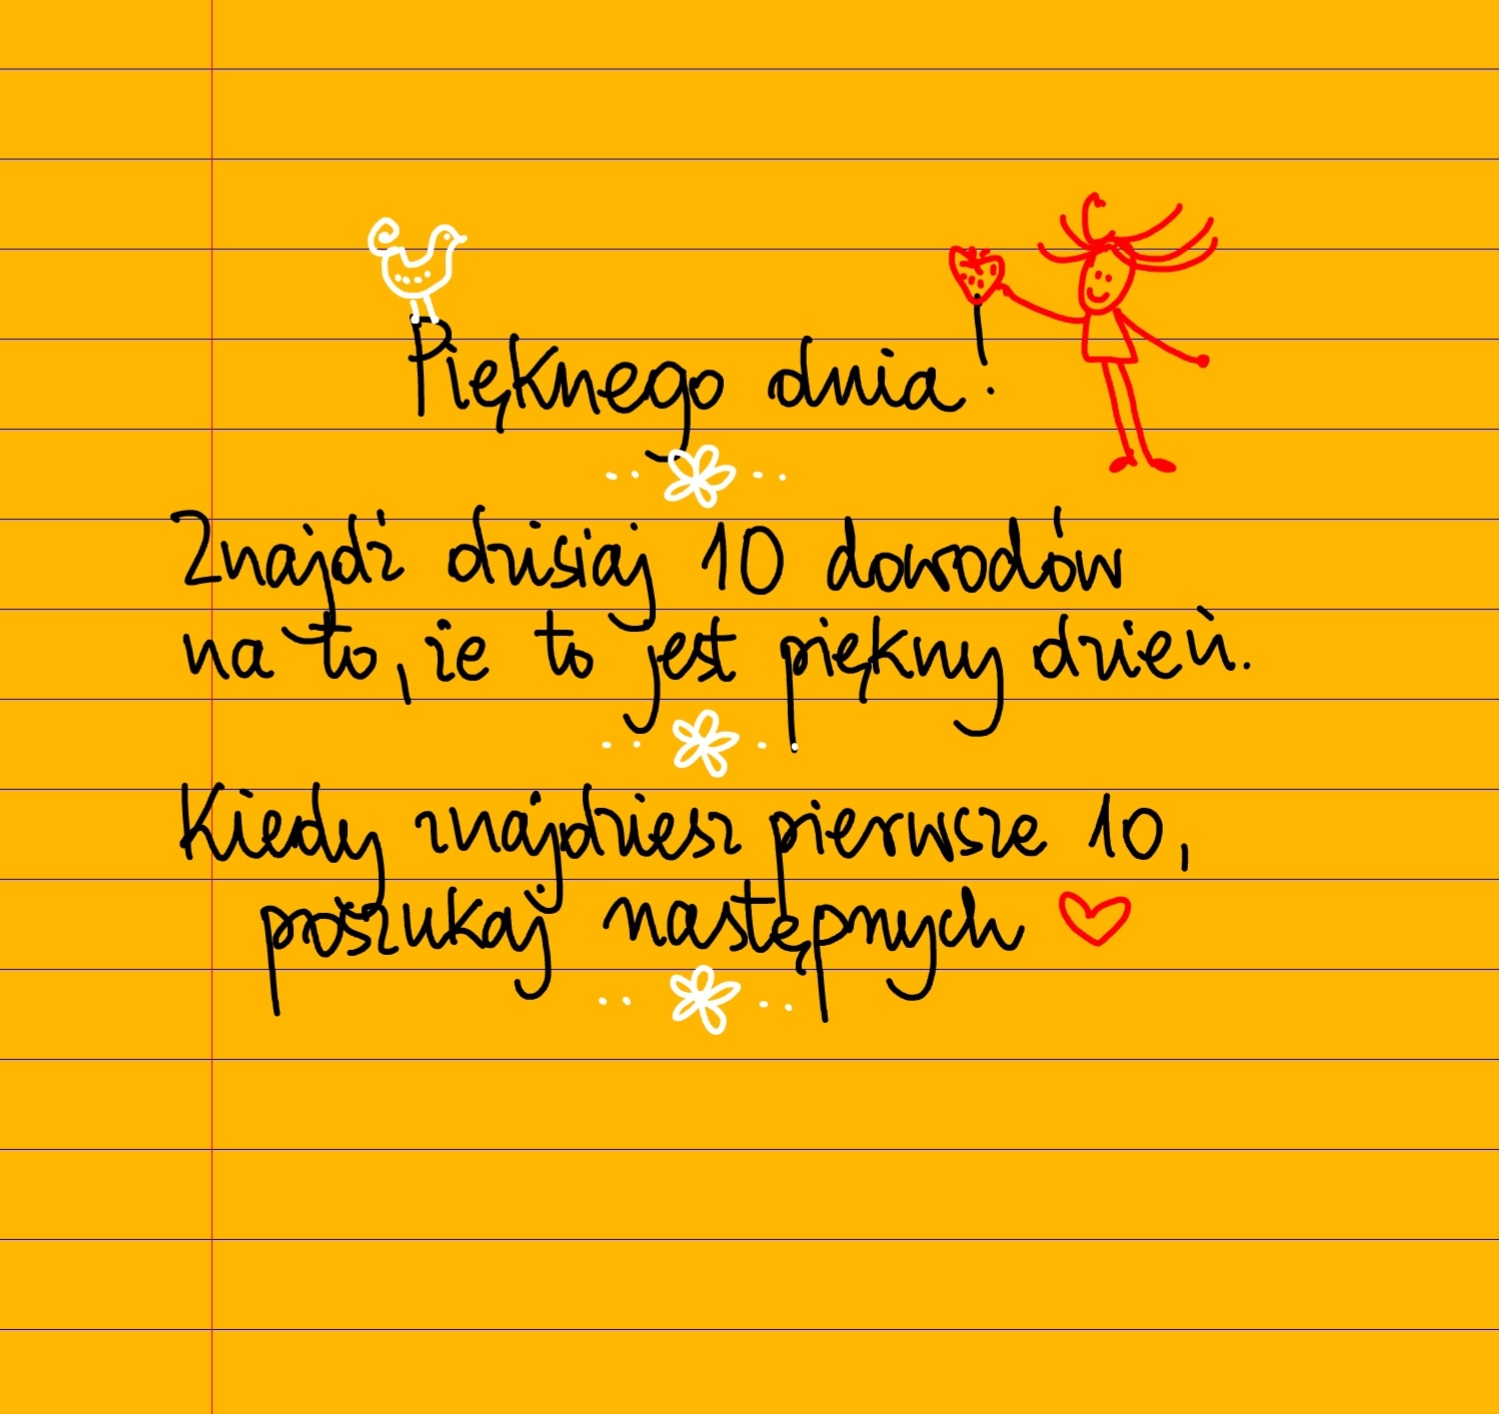 Pięknego dnia!
Znajdź dzisiaj 10 dowodów
na to, że to jest piękny dzień.
Kiedy znajdziesz pierwsze 10,
poszukaj następnych